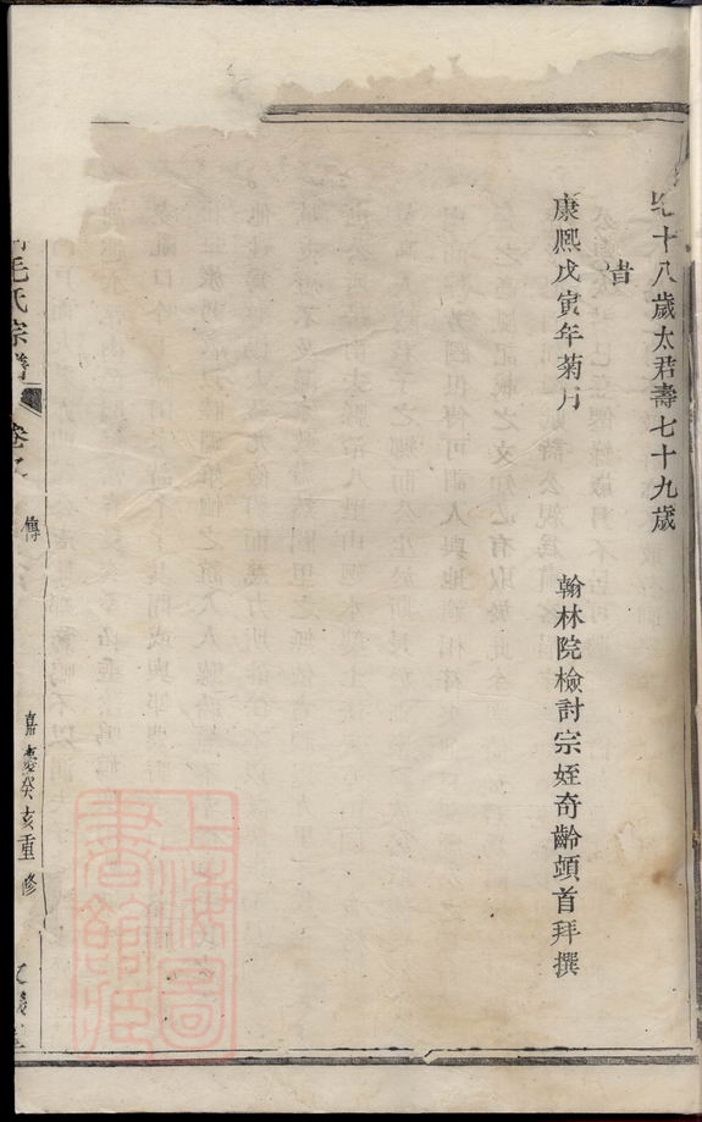 十八歲太君壽七十九歲
旹
康熈戊寅年菊月
翰林院檢討宗姪奇齡頓首拜撰
毛氏宗譜
卷
傳
嘉慶癸亥重修
上海圖
書館藏